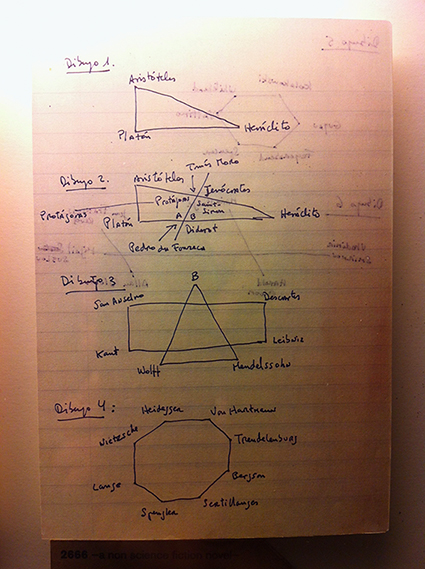 Dibujo 1.
Aristóteles
Platón
Heráclito
Dibujo 2.
Tomás Moro
Aristóteles
Jenócrates
Protágoras
Saint-
Simon
Protágoras
Platón
A B
Heráclito
Diderot
Pedro da Fonseca
Dibujo 3
B
San Anselmo
Descartes
Kant
Leibniz
Wolff
Mendelssohn
Dibujo 4:
Heidegger
Von Hartmann
Nietzsche
Trendelenburg
Lange
Bergson
Spengler
2666 —a non science fiction novel—